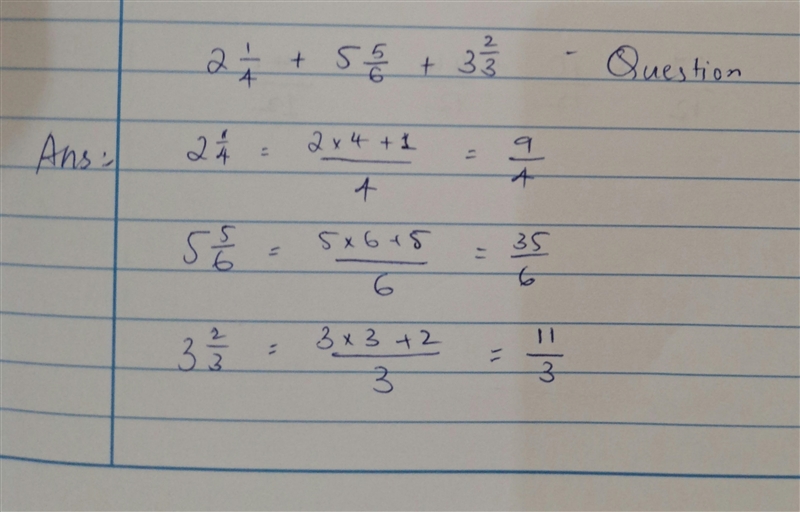 2 1/4 + 5 5/6 + 3 2/3 - Question
Ans:- 2 1/4 = (2 × 4 + 1)/4 = 9/4
5 5/6 = (5 × 6 + 5)/6 = 35/6
3 2/3 = (3 × 3 + 2)/3 = 11/3